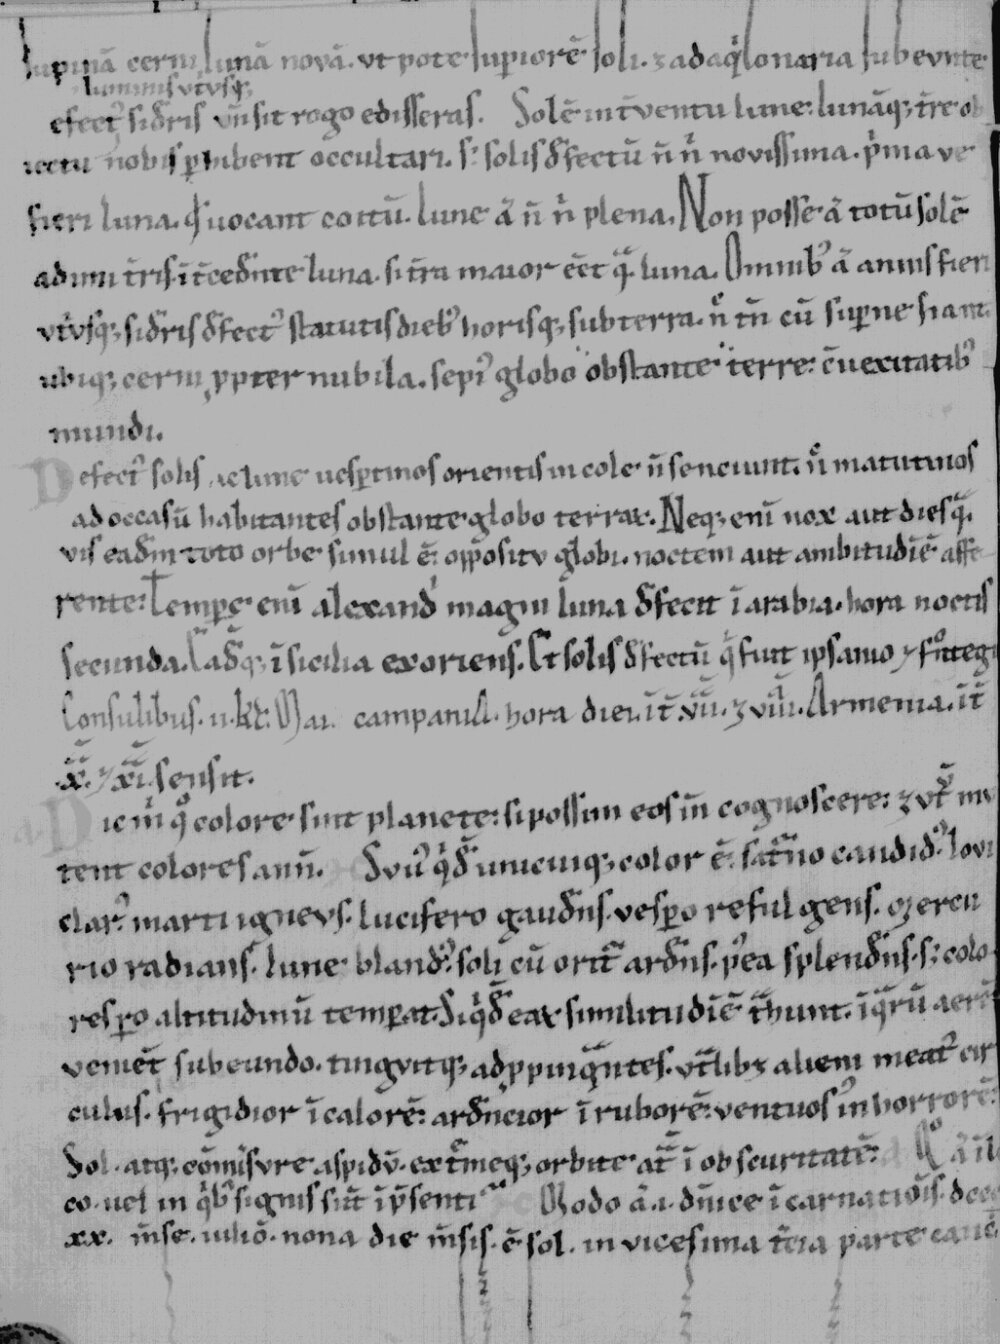 supinā cerni lunā novā. ut pote supiorē soli. ⁊ ad aq̇lonaria subeunte
luminis utrusq;
efect᾿ sid̄ris un̄ sit rogo edisseras. Solē int̄ventu lune: lunāq; t̄re ob
iectu nobis ꝑhibent occultari. s; solis d̄fectū n̄ n᷒ novissima. p᷒ma ve
fieri luna. q᷒d uocant coitū. lune ā n̄ n᷒ plena. Non posse ā totū solē
adimi t̄ris. īt̄ced̄nte luna. si t̄ra maior eēt q̄ luna. Omnib᾿ ā annis fieri
utr᷒usq; sid̄ris d̄fect᾿ statutis dieb᾿ horisq; sub terra. n̄ tn̄ cū suꝑne fiant.
ubiq; cerni ꝓpter nubila. sepi᾿ globo obstante terre: c̄uexitatib᾿
mundi.
Defect᾿ solis ac lune uesꝑtinos orientis incole n̄ senciunt. n᷒ matutinos
ad occasū habitantes obstante globo terrar. Neq; eni nox aut dies q̄
vis ead̄m toto orbe simul ē: oppositu globi. noctem aut ambitudiē affe
rente: Tempe eni alexand᷒ magni luna d̄fecit ī arabia. hora noctis
secunda. Ead̄q; ī sicilia exoriens. Et solis d̄fectū q᷒ fuit ipsanio ⁊ fōntegi
Consulibus. ii. kł. Mai. campania. hora diei. īt̄ vii. ⁊ viii. Armenia. īt̄
x. ⁊ xi. sensit.
Dic m᷒ q̊ colore sint planete: si possim eos in̄ cognoscere: ⁊ ut̄ mu
tent colores ann̄. Suu᾿ q᷒d̄ unicuiq; color ē. sat̄no candid᾿. Iovi
clar᾿. marti igneus. lucifero gaud̄ns. vesꝑo refulgens. Mercu
rio radians. lune bland᾿. soli cū orit᾿ ard̄ns. p᾿ea splend̄ns. s; colo
res ꝓ altitudinū temꝑat. Siq᷒d̄ eax similitudiē t̄hunt. ī q̄rū aerē
veniēt subeundo. tingvitq; adꝓpinq̄ntes. ut̄libꝫ alieni meat᾿ cir
culus. frigidior ī calorē: ard̄ncior ī ruborē: ventuos᾿ in horrorē:
Sol. atq; comisure aspidū. ext̄meq; orbite at̄ ī obscuritatē: Q̊ ā il
co. uel in q᷒b᾿ signis sit īp̄senti Modo ā. i. dn̄ice īcarnatiōis. dccc
xx. m̄se. iuliō. nona die m̄sis. ē sol. in vicesima t̄cia parte canc̄